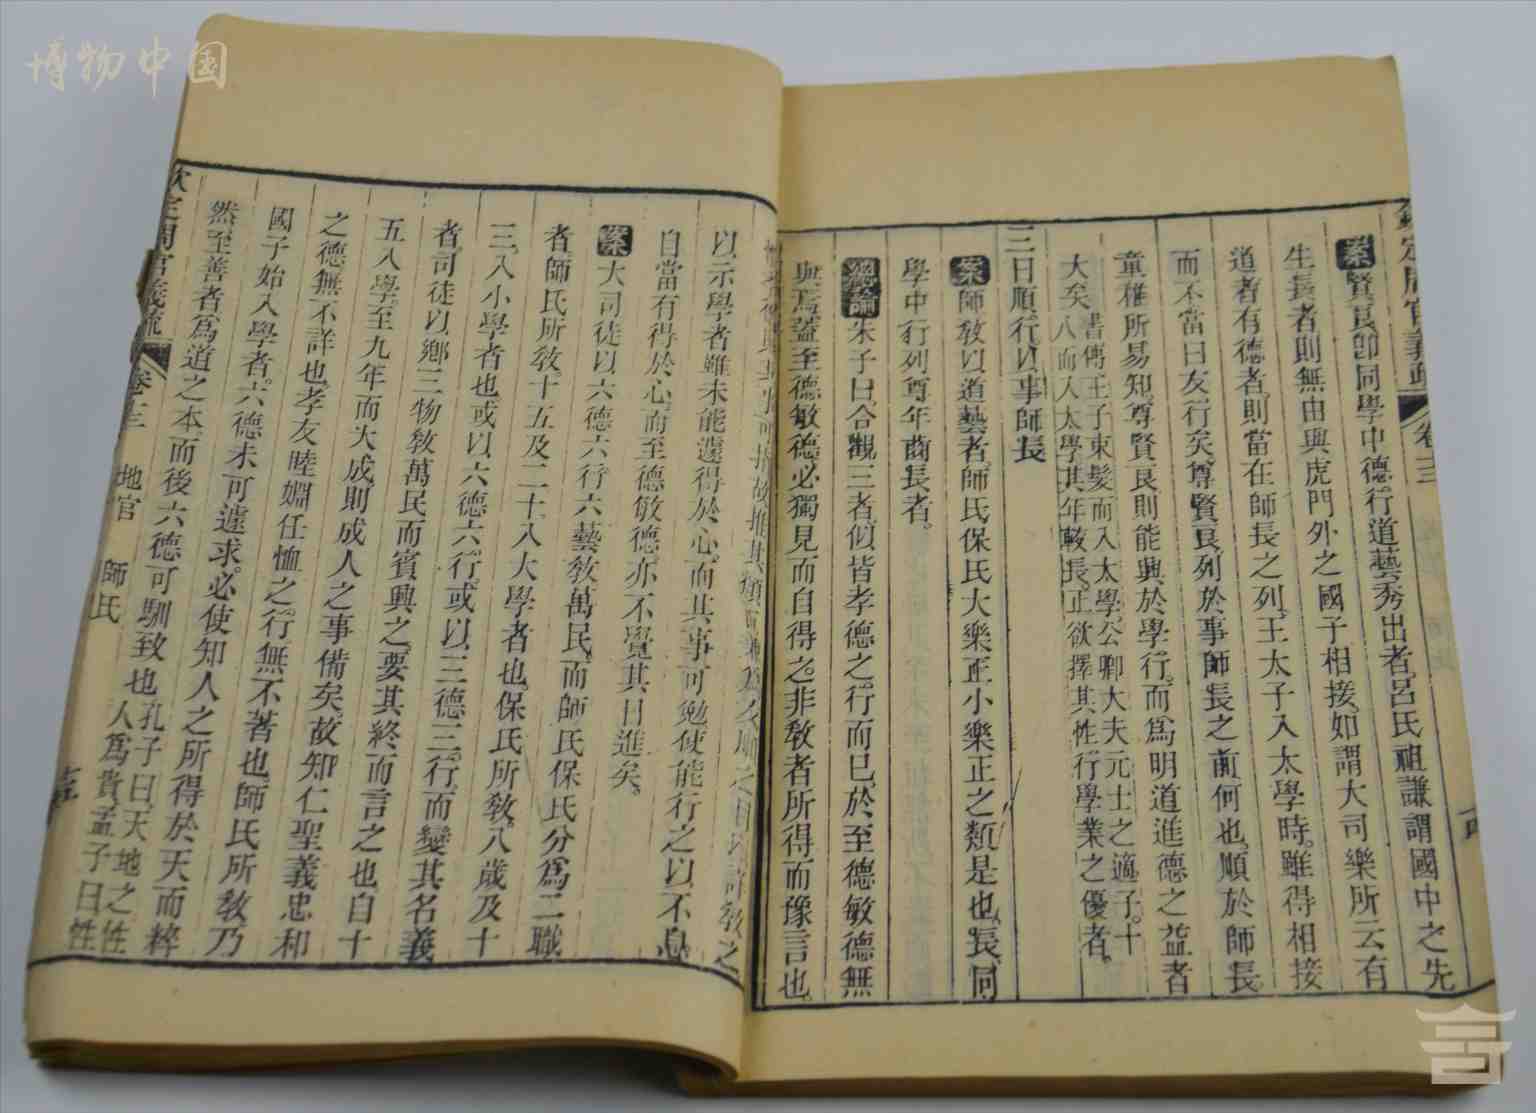 博物中國
欽定周官義疏 卷十三
案賢良卽同學中德行道藝秀出者呂氏祖謙謂國中之先
生長者則無由與虎門外之國子相接如謂大司樂所云有
道者有德者則當在師長之列王太子入太學時雖得相接
而不當曰友行矣尊賢良列於事師長之前何也順於師長
童稚所易知尊賢良則能興於學行而爲明道進德之益者
大矣
書傳王子束髮而入太學公卿大夫元士之適子十
八而入太學其年較長正欲擇其性行學業之優者
三曰順行以事師長
案師敎以道藝者師氏保氏大樂正小樂正之類是也長同
學中行列尊年齒長者
總論朱子曰合觀三者似皆孝德之行而已於至德敏德無
與焉蓋至德敏德必獨見而自得之非敎者所得而豫言也
以示學者雖未能遽得於心而其事可勉使能行之以不息
自當有得於心而至德敏德亦不覺其日進矣
案大司徒以六德六行六藝敎萬民而師氏保氏分爲二職
者師氏所敎十五及二十入大學者也保氏所敎八歲及十
三入小學者也或以六德六行或以三德三行而變其名義
者司徒以鄉三物敎萬民而賓興之要其終而言之也自十
五入學至九年而大成則成人之事備矣故知仁聖義忠和
之德無不詳也孝友睦婣任恤之行無不著也師氏所敎乃
國子始入學者六德未可遽求必使知人之所得於天而粹
然至善者爲道之本而後六德可馴致也
孔子曰天地之性
人爲貴孟子曰性
欽定周官義疏 卷十三 地官 師氏